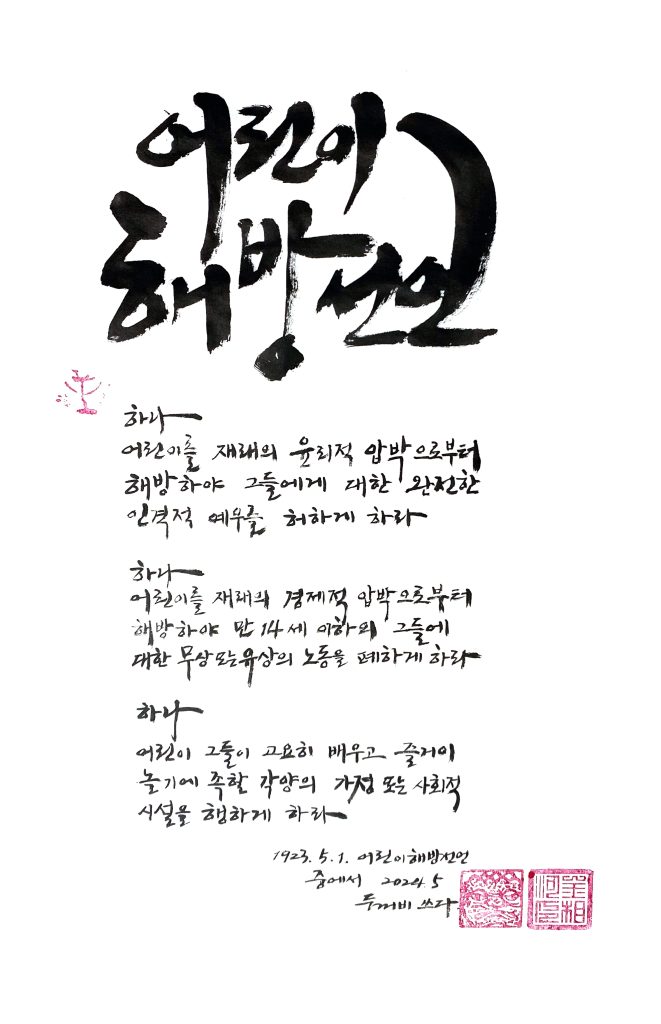 어린이
해방선언
하나
어린이를 재래의 윤리적 압박으로부터
해방하야 그들에게 대한 완전한
인격적 예우를 허하게 하라
하나
어린이를 재래의 경제적 압박으로부터
해방하야 만 14세 이하의 그들에
대한 무상또는유상의 노동을 폐하게 하라
하나
어린이 그들이 고요히 배우고 즐거이
놀기에 족할 각양의 가정 또는 사회적
시설을 행하게 하라
1923. 5. 1. 어린이해방선언
중에서 2024. 5
두꺼비 쓰다